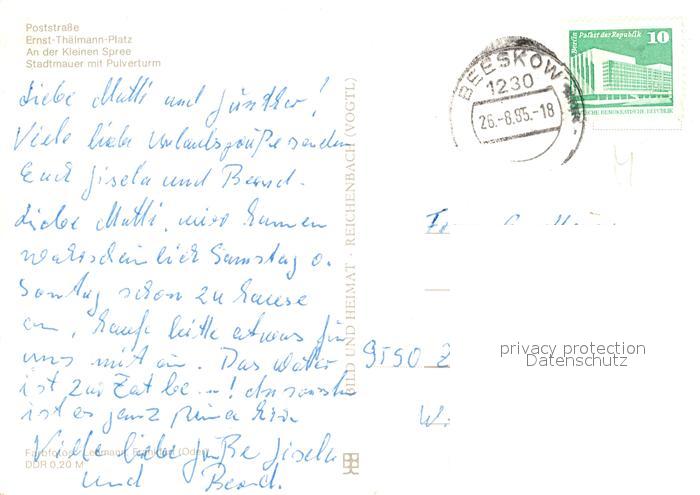 Poststraße
Ernst-Thälmann-Platz
An der Kleinen Spree
Stadtmauer mit Pulverturm
Liebe Mutti und Günther!
Viele liebe Urlaubsgrüße senden
Euch Gisela und Bernd.
Liebe Mutti, wir kommen
wahrscheinlich Samstag o.
Sonntag schon zu Hause
an, kaufe bitte etwas für
uns mit ein. Das Wetter
ist zur Zeit be...! Ansonsten
ist es ganz prima hier
Viele liebe Grüße Gisela
und Bernd.
Farbfotos: Lehmann, Frankfurt (Oder)
DDR 0,20 M
BILD UND HEIMAT · REICHENBACH (VOGTL)
BEESKOW
1230
26.-8.85.-18
Berlin Palast der Republik
10
DEUTSCHE DEMOKRATISCHE REPUBLIK
9590 Z
privacy protection
Datenschutz